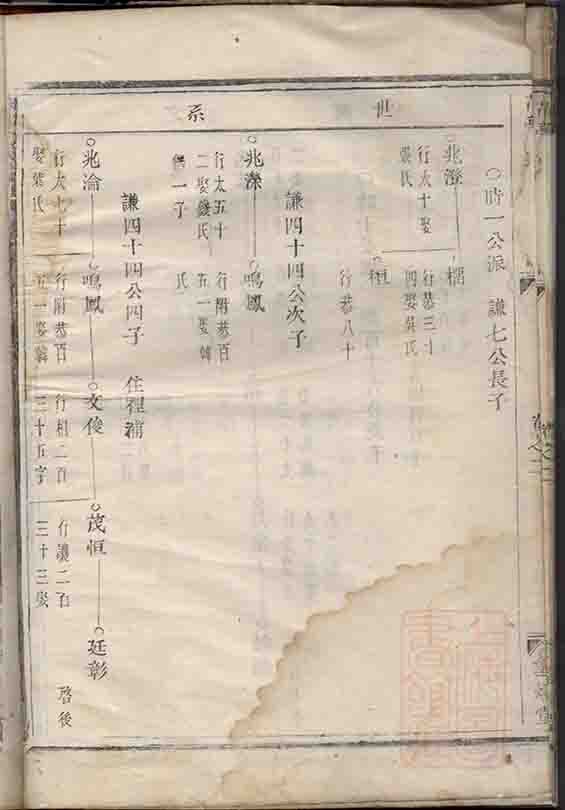 世系
時一公派 謙七公長子
兆澄
行太十娶
張氏
榴
行恭三十
四娶吳氏
桓
行恭八十
謙四十四公次子
兆濚
行太五十
二娶錢氏
一子
鳴鳳
行附恭百
五一娶韓
氏
謙四十四公四子 住裡浦
兆淪
行太七十
娶葉氏
鳴鳳
行附恭百
五一娶韓
文俊
行相二百
三十五字
茂恒
行讓二百
三十三娶
廷彰
啓後